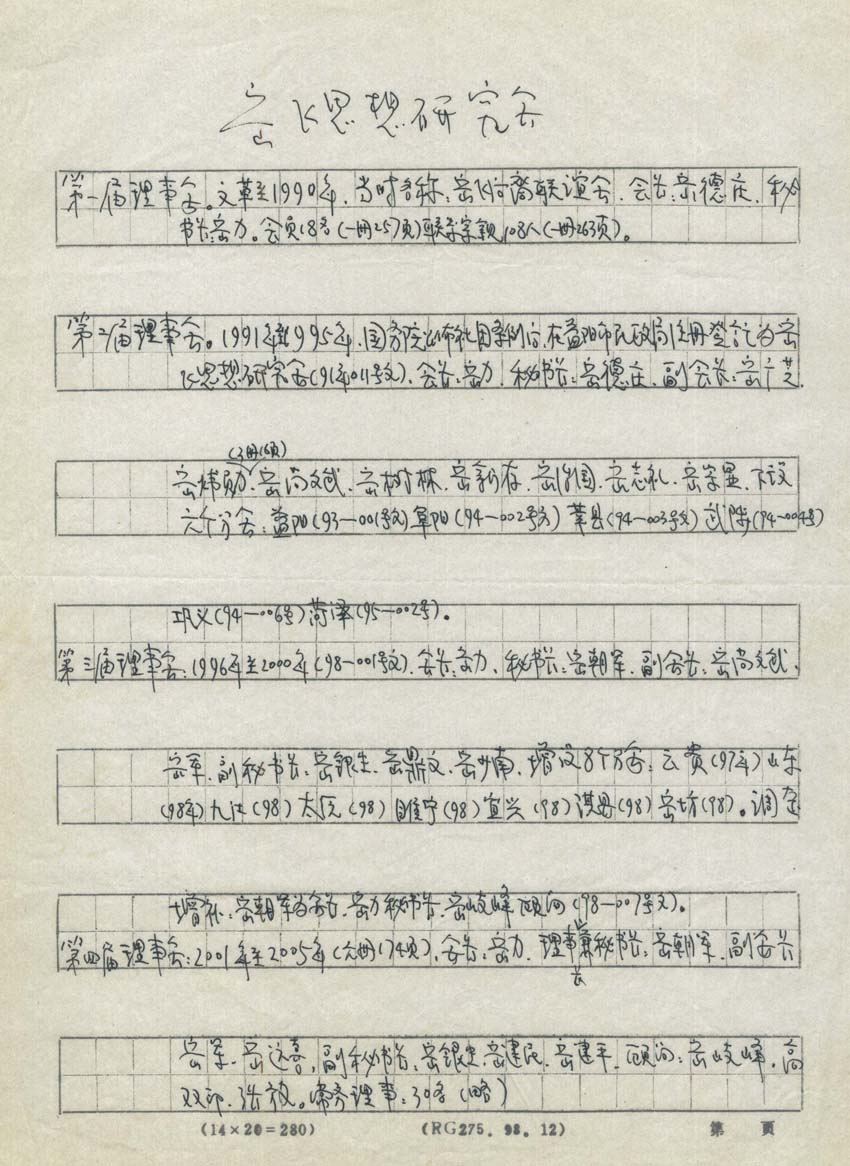 岳飞思想研究会
第一届理事会。文革至1990年,当时名称:岳飞后裔联谊会,会长:岳德庄,秘
书长:岳力。会员18名(一册257页)联系宗亲108人(一册263页)。
第二届理事会。1991年至1995年,国务院公布社团条例后,在益阳市民政局注册登记为岳
飞思想研究会(91年011号文),会长:岳力,秘书长:岳德庄,副会长:岳广芝.
(3册16页)
岳炜勋、岳尚文武、岳树林、岳新存、岳治国、岳志礼、岳宗显,下设
六个分会:益阳(93—001号文)阜阳(94—002号文)莘县(94—003号文)武陟(94—004号)
巩义(94—006号)菏泽(95—002号)。
第三届理事会:1996年至2000年(98—001号文),会长:岳力,秘书长:岳朝军,副会长:岳尚文武、
岳军,副秘书长:岳银生、岳鼎文、岳少南,增设8个分会:云贵(97年)山东
(98年)九江(98)太原(98)睢宁(98)宜兴(98)淇县(98)岳坊(98)。调查
增补:岳朝军为会长,岳力秘书长,岳岐峰顾问(98—007号文)。
第四届理事会:2001年至2005年(六册174页),会长:岳力,理事长兼秘书长:岳朝军,副会长
岳军、岳达喜,副秘书长:岳银生、岳建民、岳建平,顾问:岳岐峰,高
双印、张放。常务理事:30名(略)
(14×20=280) (RG275.98.12) 第 页